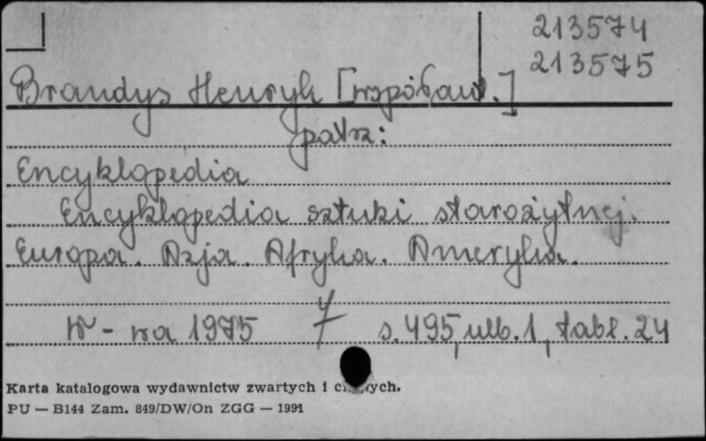 213574
213575
Brandys Henryk [współaut.]
patrz:
Encyklopedia
Encyklopedia sztuki starożytnej.
Europa. Azja. Afryka. Ameryka.
W-wa 1975 s. 495, ulb. 1, tabl. 24
Karta katalogowa wydawnictw zwartych i ciągłych.
PU — B144 Zam. 849/DW/On ZGG — 1991